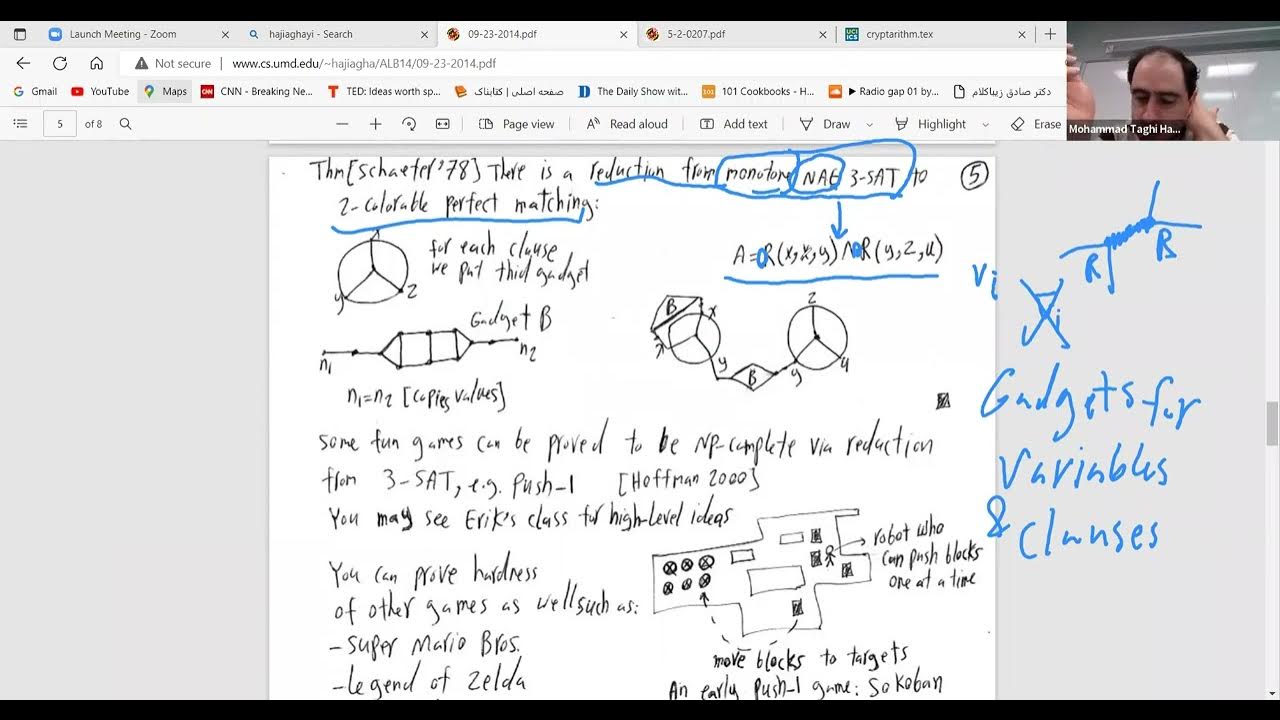 Launch Meeting - Zoom
hajiaghayi - Search
09-23-2014.pdf
5-2-0207.pdf
cryptarithm.tex
Not secure
www.cs.umd.edu/~hajiagha/ALB14/09-23-2014.pdf
Gmail
YouTube
Maps
CNN - Breaking Ne...
TED: Ideas worth sp...
صفحه اصلی | کتابناک
The Daily Show wit...
101 Cookbooks - H...
Radio gap 01 by...
دکتر صادق زیباکلام
5 of 8
Page view
Read aloud
Add text
Draw
Highlight
Erase
Mohammad Taghi Ha...
Thm[Schaefer'78] There is a reduction from monotone NAE 3-SAT to
5
2-colorable perfect matching:
for each clause
we put this gadget
y
z
A = R(x,x,y) ∧ R(y,z,u)
Gadget B
n1
n2
n1=n2 [copies values]
B
x
y
B
z
y
u
R
B
Vi
Gadgets for
Variables
& Clauses
some fun games can be proved to be NP-complete via reduction
from 3-SAT, e.g. push-1 [Hoffman 2000]
You may see Erik's class for high-level ideas
You can prove hardness
of other games as well such as:
- super Mario Bros.
- legend of Zelda
robot who
can push blocks
one at a time
move blocks to targets
An early push-1 game: Sokoban